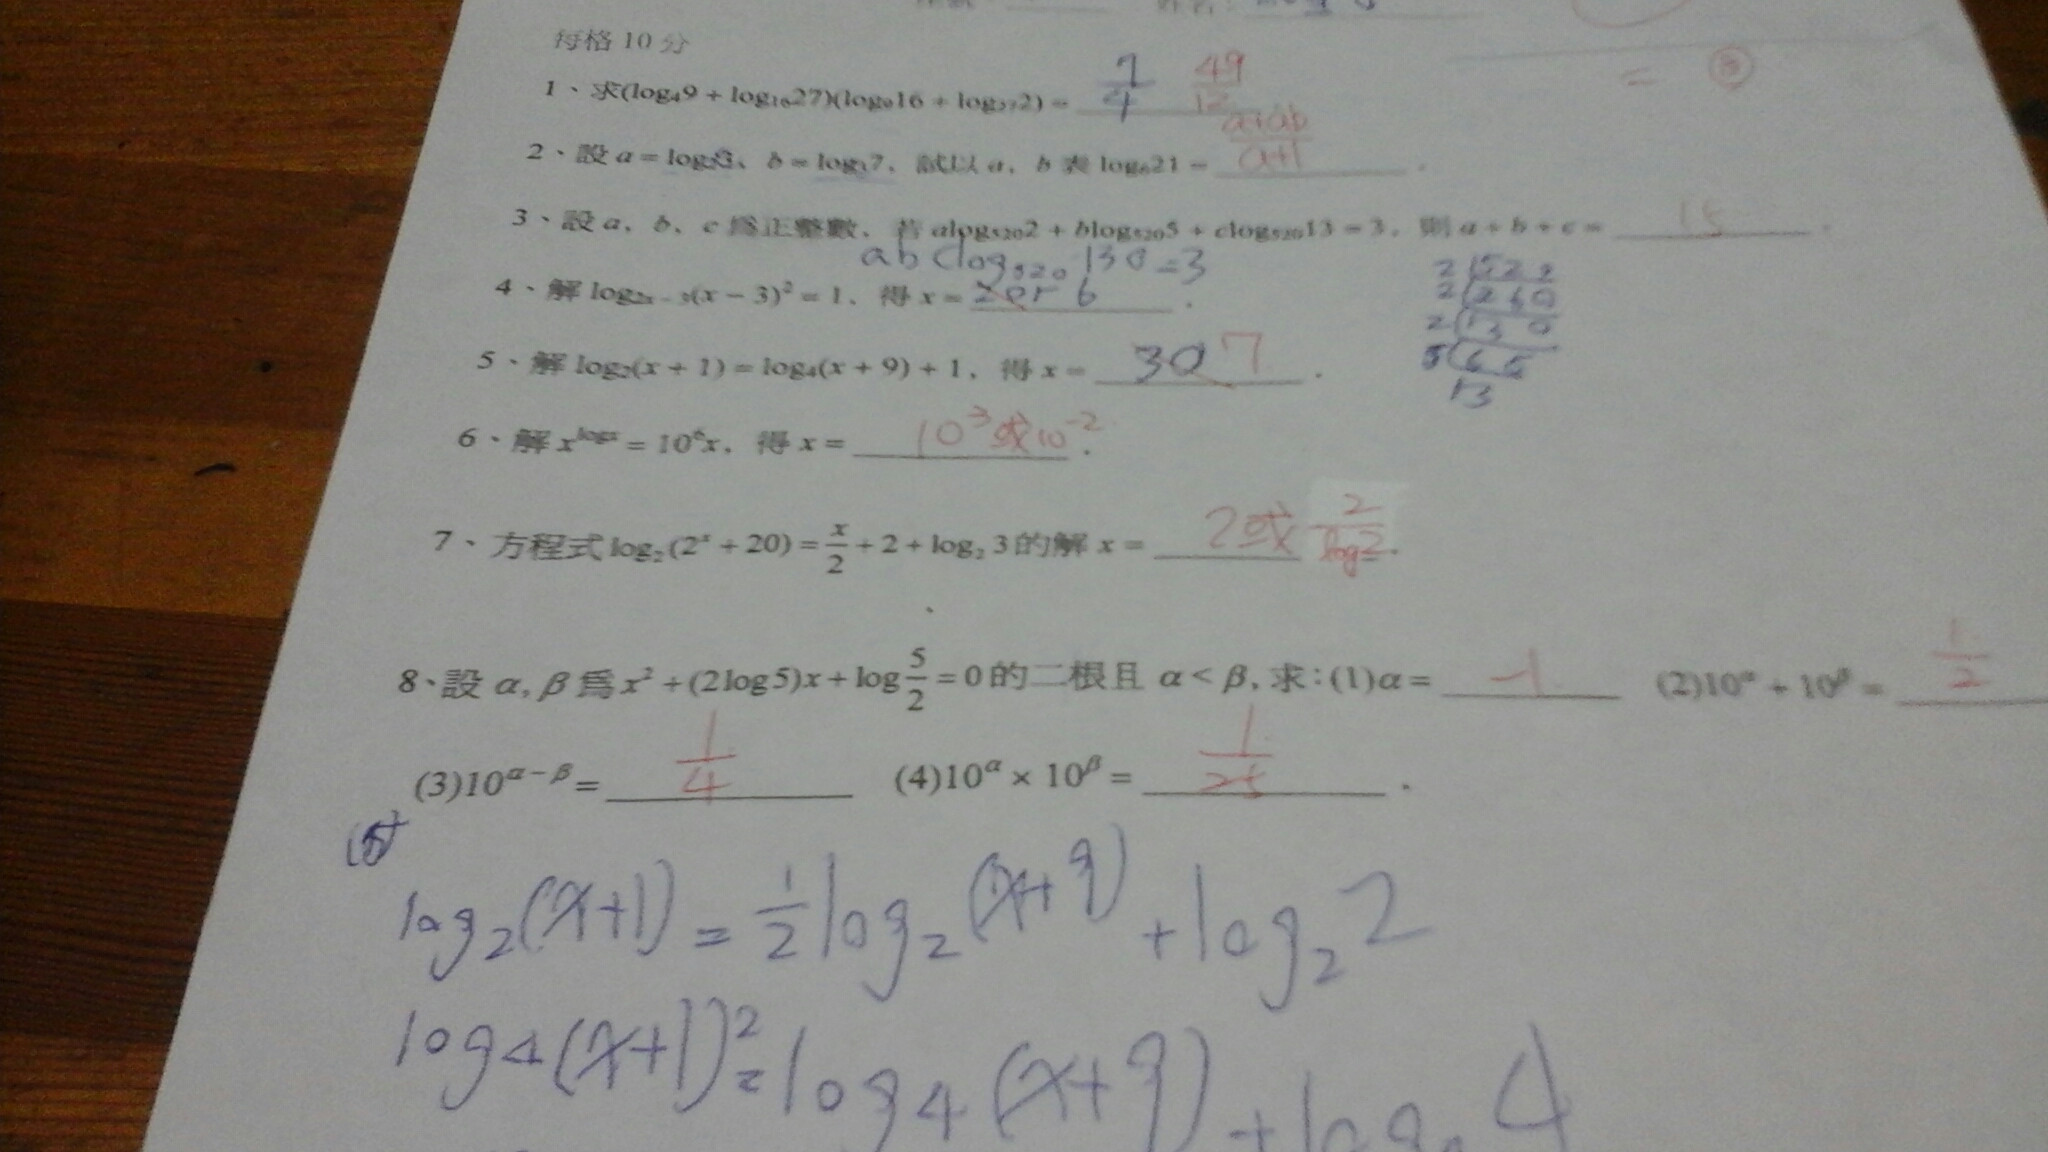 每格10分
1、求(log₄9 + log₁₆27)(log₉16 + log₂₇2) = 7/4 49/12
2、設 a = log₂3、b = log₃7,試以 a,b 表 log₆21 = (a+ab)/(a+1).
3、設 a,b,c 為正整數,若 alog₅₂₀2 + blog₅₂₀5 + clog₅₂₀13 = 3,則 a + b + c = 15.
abclog₅₂₀130=3
2 520
2 260
2 130
5 65
13
4、解 log₂ₓ₋₃(x − 3)² = 1,得 x = 2 or 6.
5、解 log₂(x + 1) = log₄(x + 9) + 1,得 x = 30 7.
6、解 x^(logx) = 10⁶x,得 x = 10³或10⁻².
7、方程式 log₂(2ˣ + 20) = x/2 + 2 + log₂ 3 的解 x = 2或 2/log2.
8、設 α, β 爲 x² + (2log5)x + log 5/2 = 0 的二根且 α < β, 求:(1)α = -1 (2)10^α + 10^β = 1/2
(3)10^(α−β) = 1/4 (4)10^α × 10^β = 1/25.
(5)
log₂(x+1) = 1/2 log₂(x+9) + log₂2
log4(x+1)² = log4(x+9) + log 4